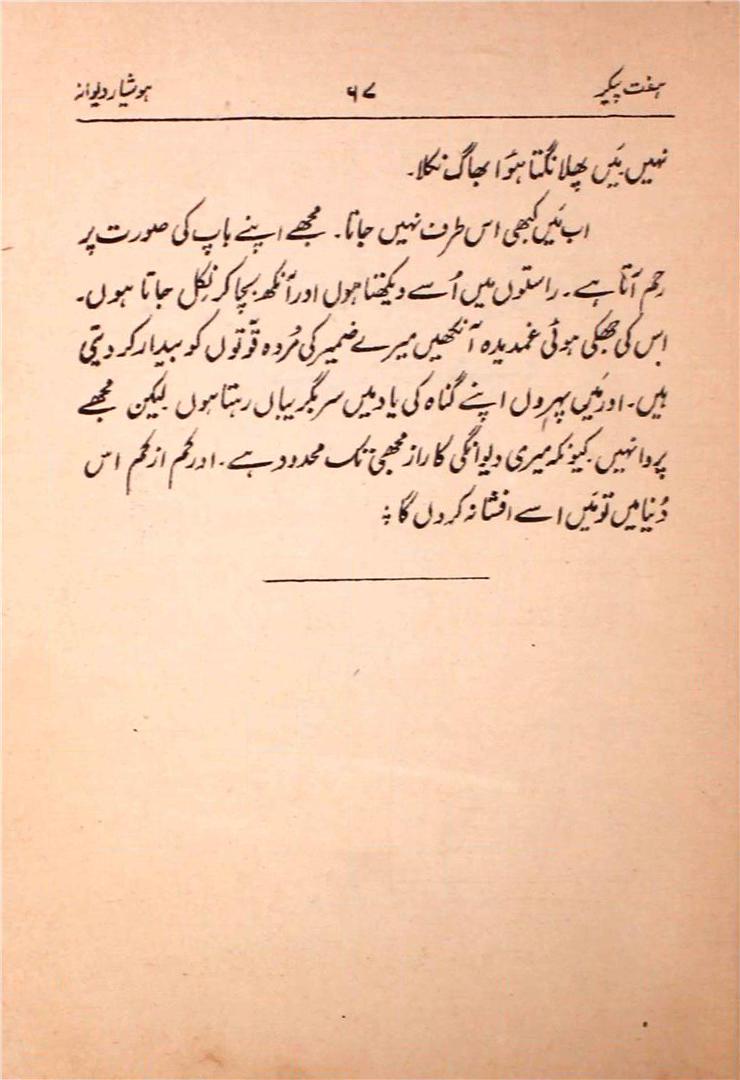 ہفت پیکر ۶۷ ہوشیار دیوانہ
نہیں مَیں پھلانگتا ہؤا بھاگ نکلا۔
اب مَیں کبھی اس طرف نہیں جاتا۔ مجھے اپنے باپ کی صورت پر
رحم آتا ہے۔ راستوں میں اُسے دیکھتا ہوں اور آنکھ بچا کر نِکل جاتا ہوں۔
اس کی جھکی ہوئی غمدیدہ آنکھیں میرے ضمیر کی مُردہ قوّتوں کو بیدار کر دیتی
ہیں۔ اور مَیں پہروں اپنے گناہ کی یاد میں سر بگریباں رہتا ہوں لیکن مجھے
پروا نہیں کیونکہ میری دیوانگی کا راز مجھی تک محدود ہے۔ اور کم از کم اس
دُنیا میں تو مَیں اسے افشا نہ کروں گا ؞